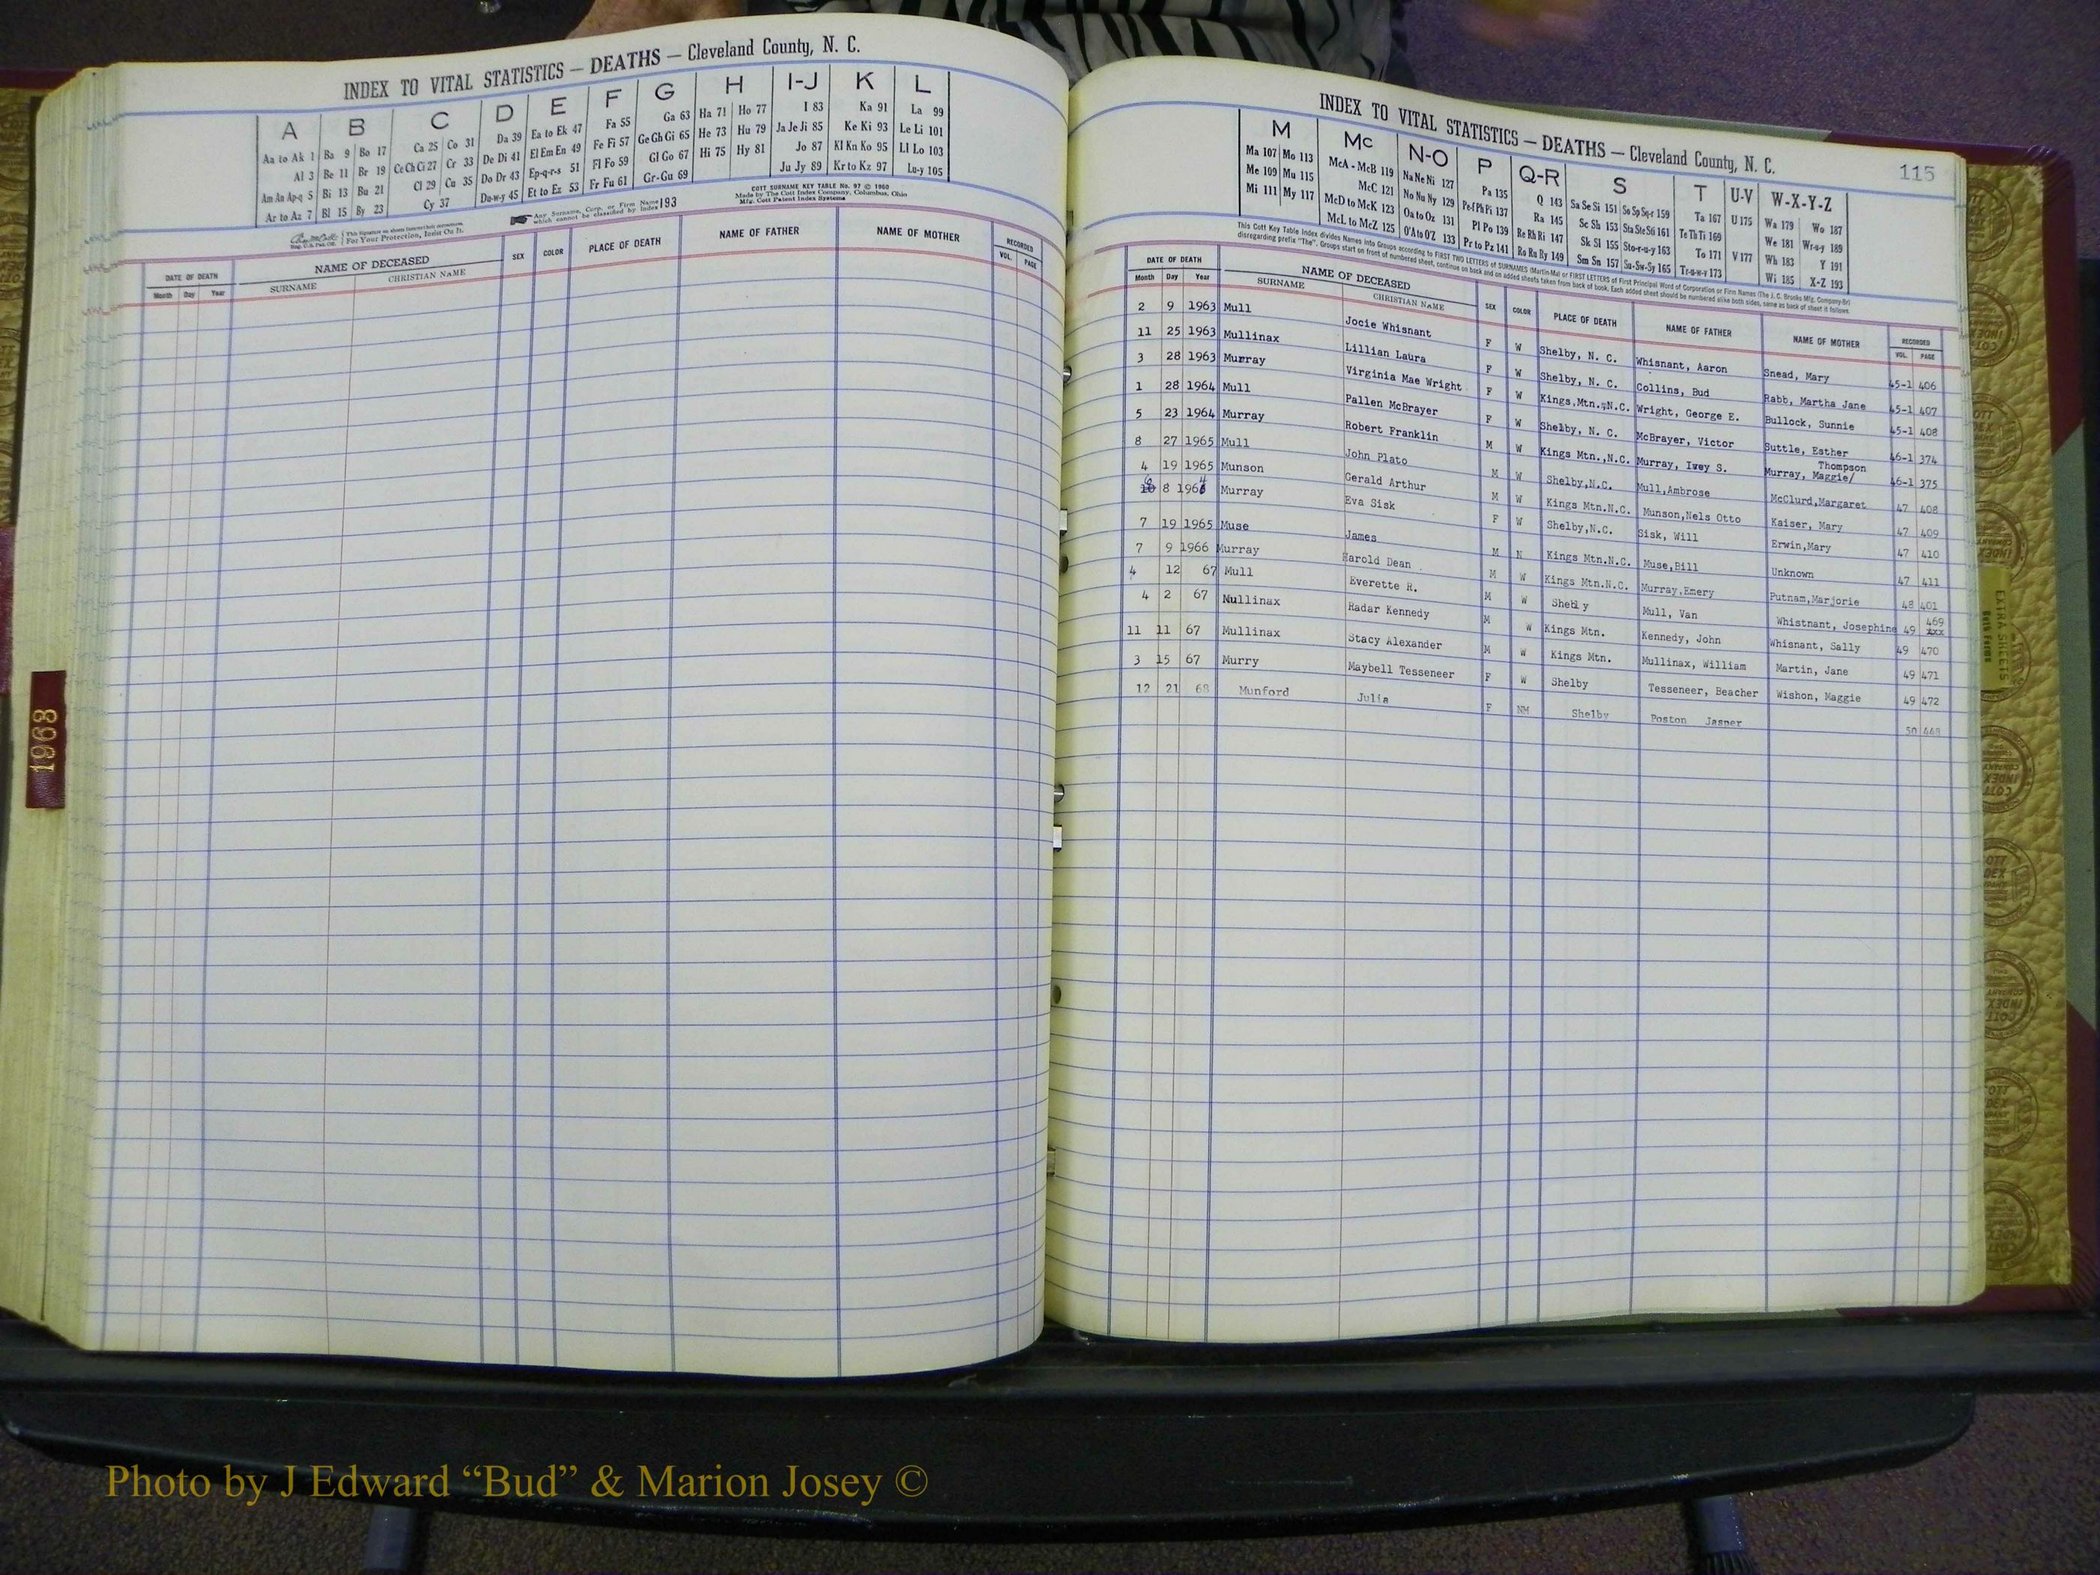 INDEX TO VITAL STATISTICS — DEATHS — Cleveland County, N. C.
A B C D E F G H I-J K L
Aa to Ak 1 Ba 9 Bo 17 Ca 25 Co 31 Da 39 Ea to Ek 47 Fa 55 Ga 63 Ha 71 Ho 77 I 83 Ka 91 La 99
Al 3 Be 11 Br 19 Ce Ch Ci 27 Cr 33 De Di 41 El Em En 49 Fe Fi 57 Ge Gh Gi 65 He 73 Hu 79 Ja Je Ji 85 Ke Ki 93 Le Li 101
Am An Ap-q 5 Bi 13 Bu 21 Cl 29 Cu 35 Do Dr 43 Ep-q-r-s 51 Fl Fo 59 Gl Go 67 Hi 75 Hy 81 Jo 87 Kl Kn Ko 95 Ll Lo 103
Ar to Az 7 Bl 15 By 23 Cy 37 Du-w-y 45 Et to Ez 53 Fr Fu 61 Gr-Gu 69 Ju Jy 89 Kr to Kz 97 Lu-y 105
COTT SURNAME KEY TABLE No. 97 © 1960
Made by The Cott Index Company, Columbus, Ohio
Mfg. Cott Patent Index Systems
For Your Protection, Insist On It.
Any Surname, Corp. or Firm Name which cannot be classified by Index 193
DATE OF DEATH NAME OF DECEASED SEX COLOR PLACE OF DEATH NAME OF FATHER NAME OF MOTHER RECORDED
Month Day Year SURNAME CHRISTIAN NAME VOL. PAGE
1968
INDEX TO VITAL STATISTICS — DEATHS — Cleveland County, N. C.
115
M Mc N-O P Q-R S T U-V W-X-Y-Z
Ma 107 Mo 113 McA - McB 119 Na Ne Ni 127 Pa 135 Q 143 Sa Se Si 151 So Sp Sq-r 159 Ta 167 U 175 Wa 179 Wo 187
Me 109 Mu 115 McC 121 No Nu Ny 129 Pe-f Ph Pi 137 Ra 145 Sc Sh 153 Sta Ste Sti 161 Te Th Ti 169 We 181 Wr-u-y 189
Mi 111 My 117 McD to McK 123 Oa to Oz 131 Pl Po 139 Re Rh Ri 147 Sk Sl 155 Sto-r-u-y 163 To 171 V 177 Wh 183 Y 191
McL to McZ 125 O'A to O'Z 133 Pr to Pz 141 Ro Ru Ry 149 Sm Sn 157 Su-Sw-Sy 165 Tr-u-w-y 173 Wi 185 X-Z 193
This Cott Key Table Index divides Names into Groups according to FIRST TWO LETTERS of SURNAMES (Martin-Ma) or FIRST LETTERS of First Principal Word of Corporation or Firm Names (The J. C. Brooks Mfg. Company-Br)
disregarding prefix "The". Groups start on front of numbered sheet, continue on back and on added sheets taken from back of book. Each added sheet should be numbered alike both sides, same as back of sheet it follows
DATE OF DEATH NAME OF DECEASED SEX COLOR PLACE OF DEATH NAME OF FATHER NAME OF MOTHER RECORDED
Month Day Year SURNAME CHRISTIAN NAME VOL. PAGE
2 9 1963 Mull Jocie Whisnant F W Shelby, N. C. Whisnant, Aaron Snead, Mary 45-1 406
11 25 1963 Mullinax Lillian Laura F W Shelby, N. C. Collins, Bud Rabb, Martha Jane 45-1 407
3 28 1963 Murray Virginia Mae Wright F W Kings,Mtn.,N.C. Wright, George E. Bullock, Sunnie 45-1 408
1 28 1964 Mull Pallen McBrayer F W Shelby, N. C. McBrayer, Victor Suttle, Esther 46-1 374
5 23 1964 Murray Robert Franklin M W Kings Mtn.,N.C. Murray, Ivey S. Murray, Maggie/ Thompson 46-1 375
8 27 1965 Mull John Plato M W Shelby,N.C. Mull,Ambrose McClurd,Margaret 47 408
4 19 1965 Munson Gerald Arthur M W Kings Mtn.N.C. Munson,Nels Otto Kaiser, Mary 47 409
6 8 1964 Murray Eva Sisk F W Shelby,N.C. Sisk, Will Erwin,Mary 47 410
7 19 1965 Muse James M N Kings Mtn.N.C. Muse,Bill Unknown 47 411
7 9 1966 Murray Harold Dean M W Kings Mtn.N.C. Murray,Emery Putnam,Marjorie 48 401
4 12 67 Mull Everette R. M W Shelby Mull, Van Whistnant, Josephine 49 469 xxx
4 2 67 Nullinax Radar Kennedy M W Kings Mtn. Kennedy, John Whisnant, Sally 49 470
11 11 67 Mullinax Stacy Alexander M W Kings Mtn. Mullinax, William Martin, Jane 49 471
3 15 67 Murry Maybell Tesseneer F W Shelby Tesseneer, Beacher Wishon, Maggie 49 472
12 21 68 Munford Julia F NM Shelby Poston Jasper 50 448
EXTRA SHEETS
Photo by J Edward “Bud” & Marion Josey ©